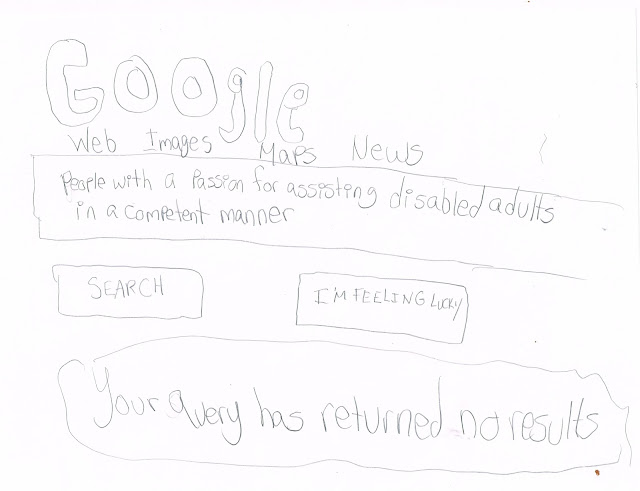 Google
Web Images Maps News
People with a Passion for assisting disabled adults
in a competent manner
SEARCH
I'M FEELING LUCKY
Your query has returned no results